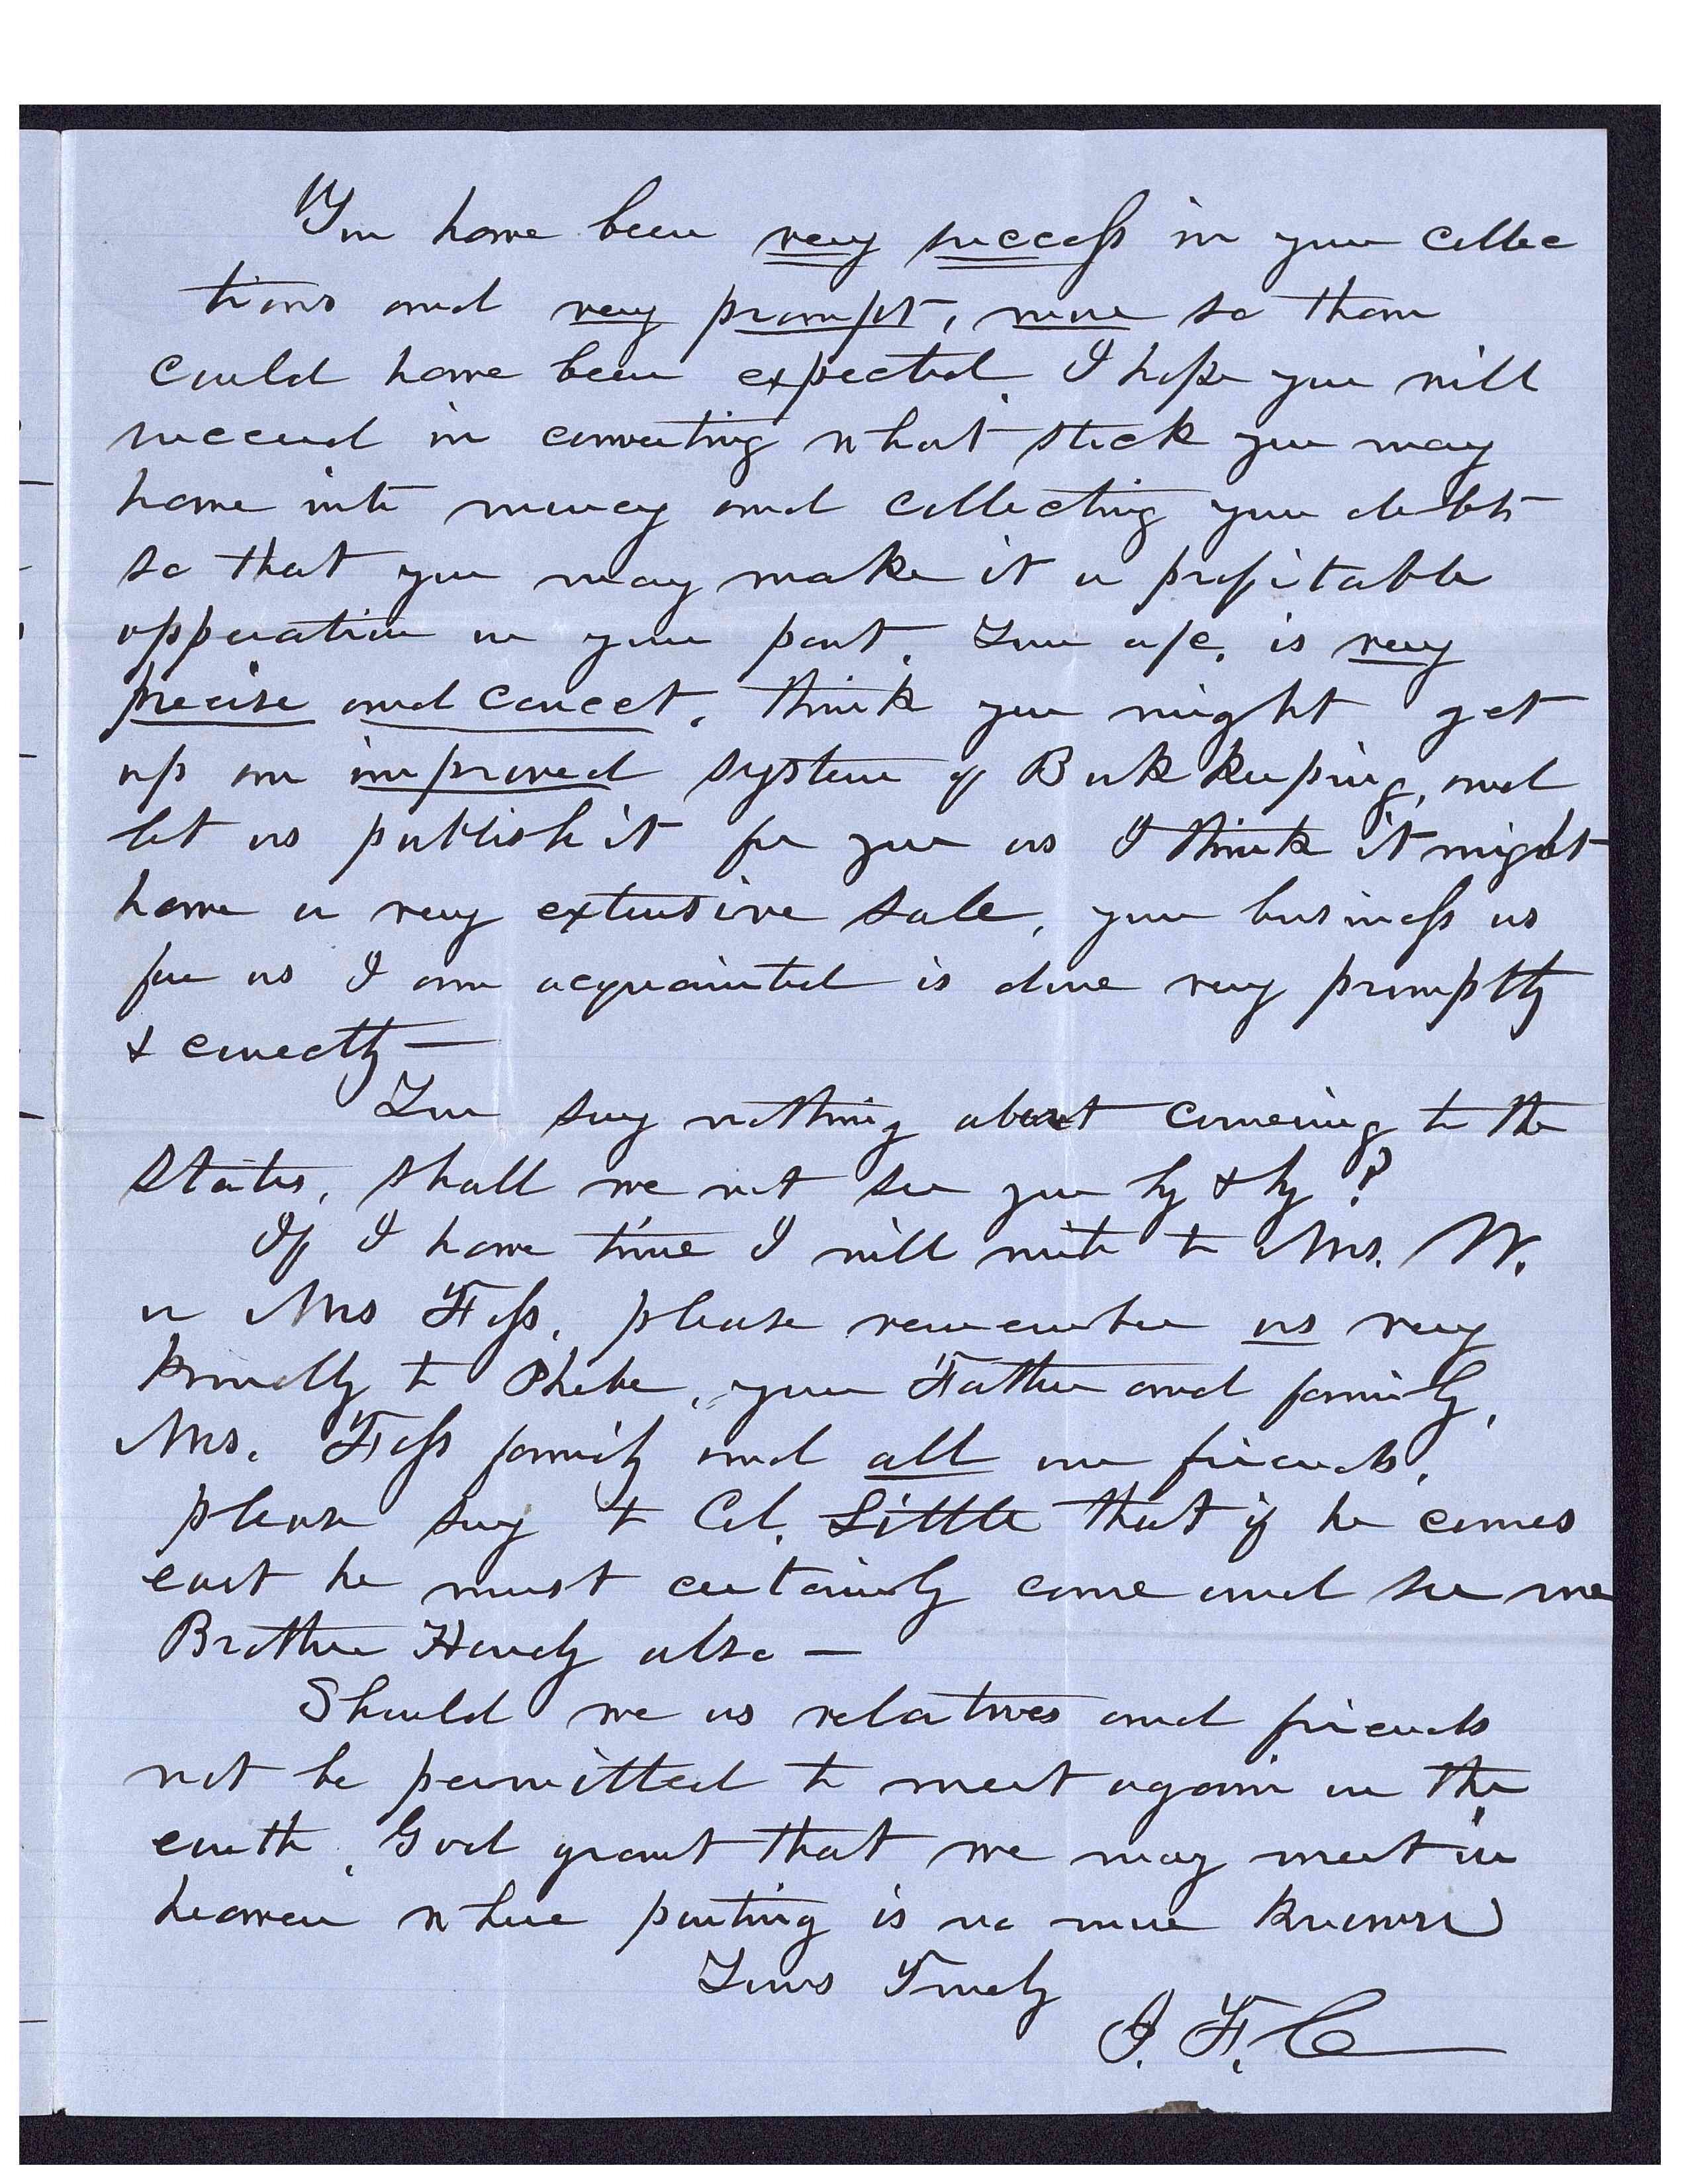 You have been very success in your collec
tions and very prompt, more so than
could have been expected I hope you will
succeed in converting what stock you may
have into money and collecting your debts
so that you may make it a profitable
opperation on your part. Your a/c. is very
precise and correct, think you might get
up an improved system of Book keeping, and
let us publish it for you as I think it might
have a very extensive sale, your business as
far as I am acquainted is done very promptly
& correctly —
You say nothing about comeing to the
States, shall we not see you by & by?
If I have time I will write to Mrs. W.
or Mrs Foss, please remember us very
kindly to Phebe, your Father and family,
Mrs. Foss family and all our friends,
please say to Col. Little that if he comes
east he must certainly come and see me
Brother Handy also —
Should we as relatives and friends
not be permitted to meet again on the
earth, God grant that we may meet in
heaven where parting is no more known
Yours Truely
J. F. C